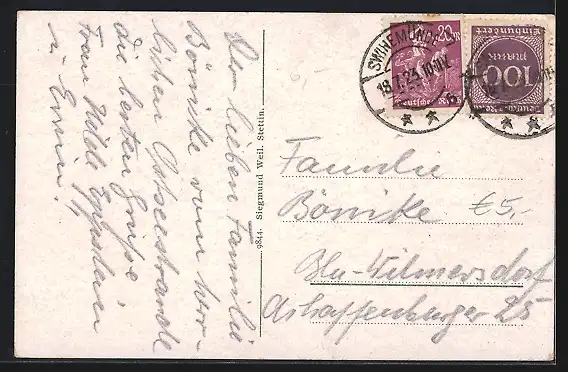 Der lieben Familie
Bönicke vom herr-
lichen Ostseestrande
die besten Grüße
Frau Hilde
u. Erwin.
9844. Siegmund Weil, Stettin.
SWINEMÜNDE
18.7.23.
20M
Deutsches Reich
Einhundert
Mark
100
Familie
Bönicke
£5,-
Bln-Wilmersdorf
Aschaffenburger 25